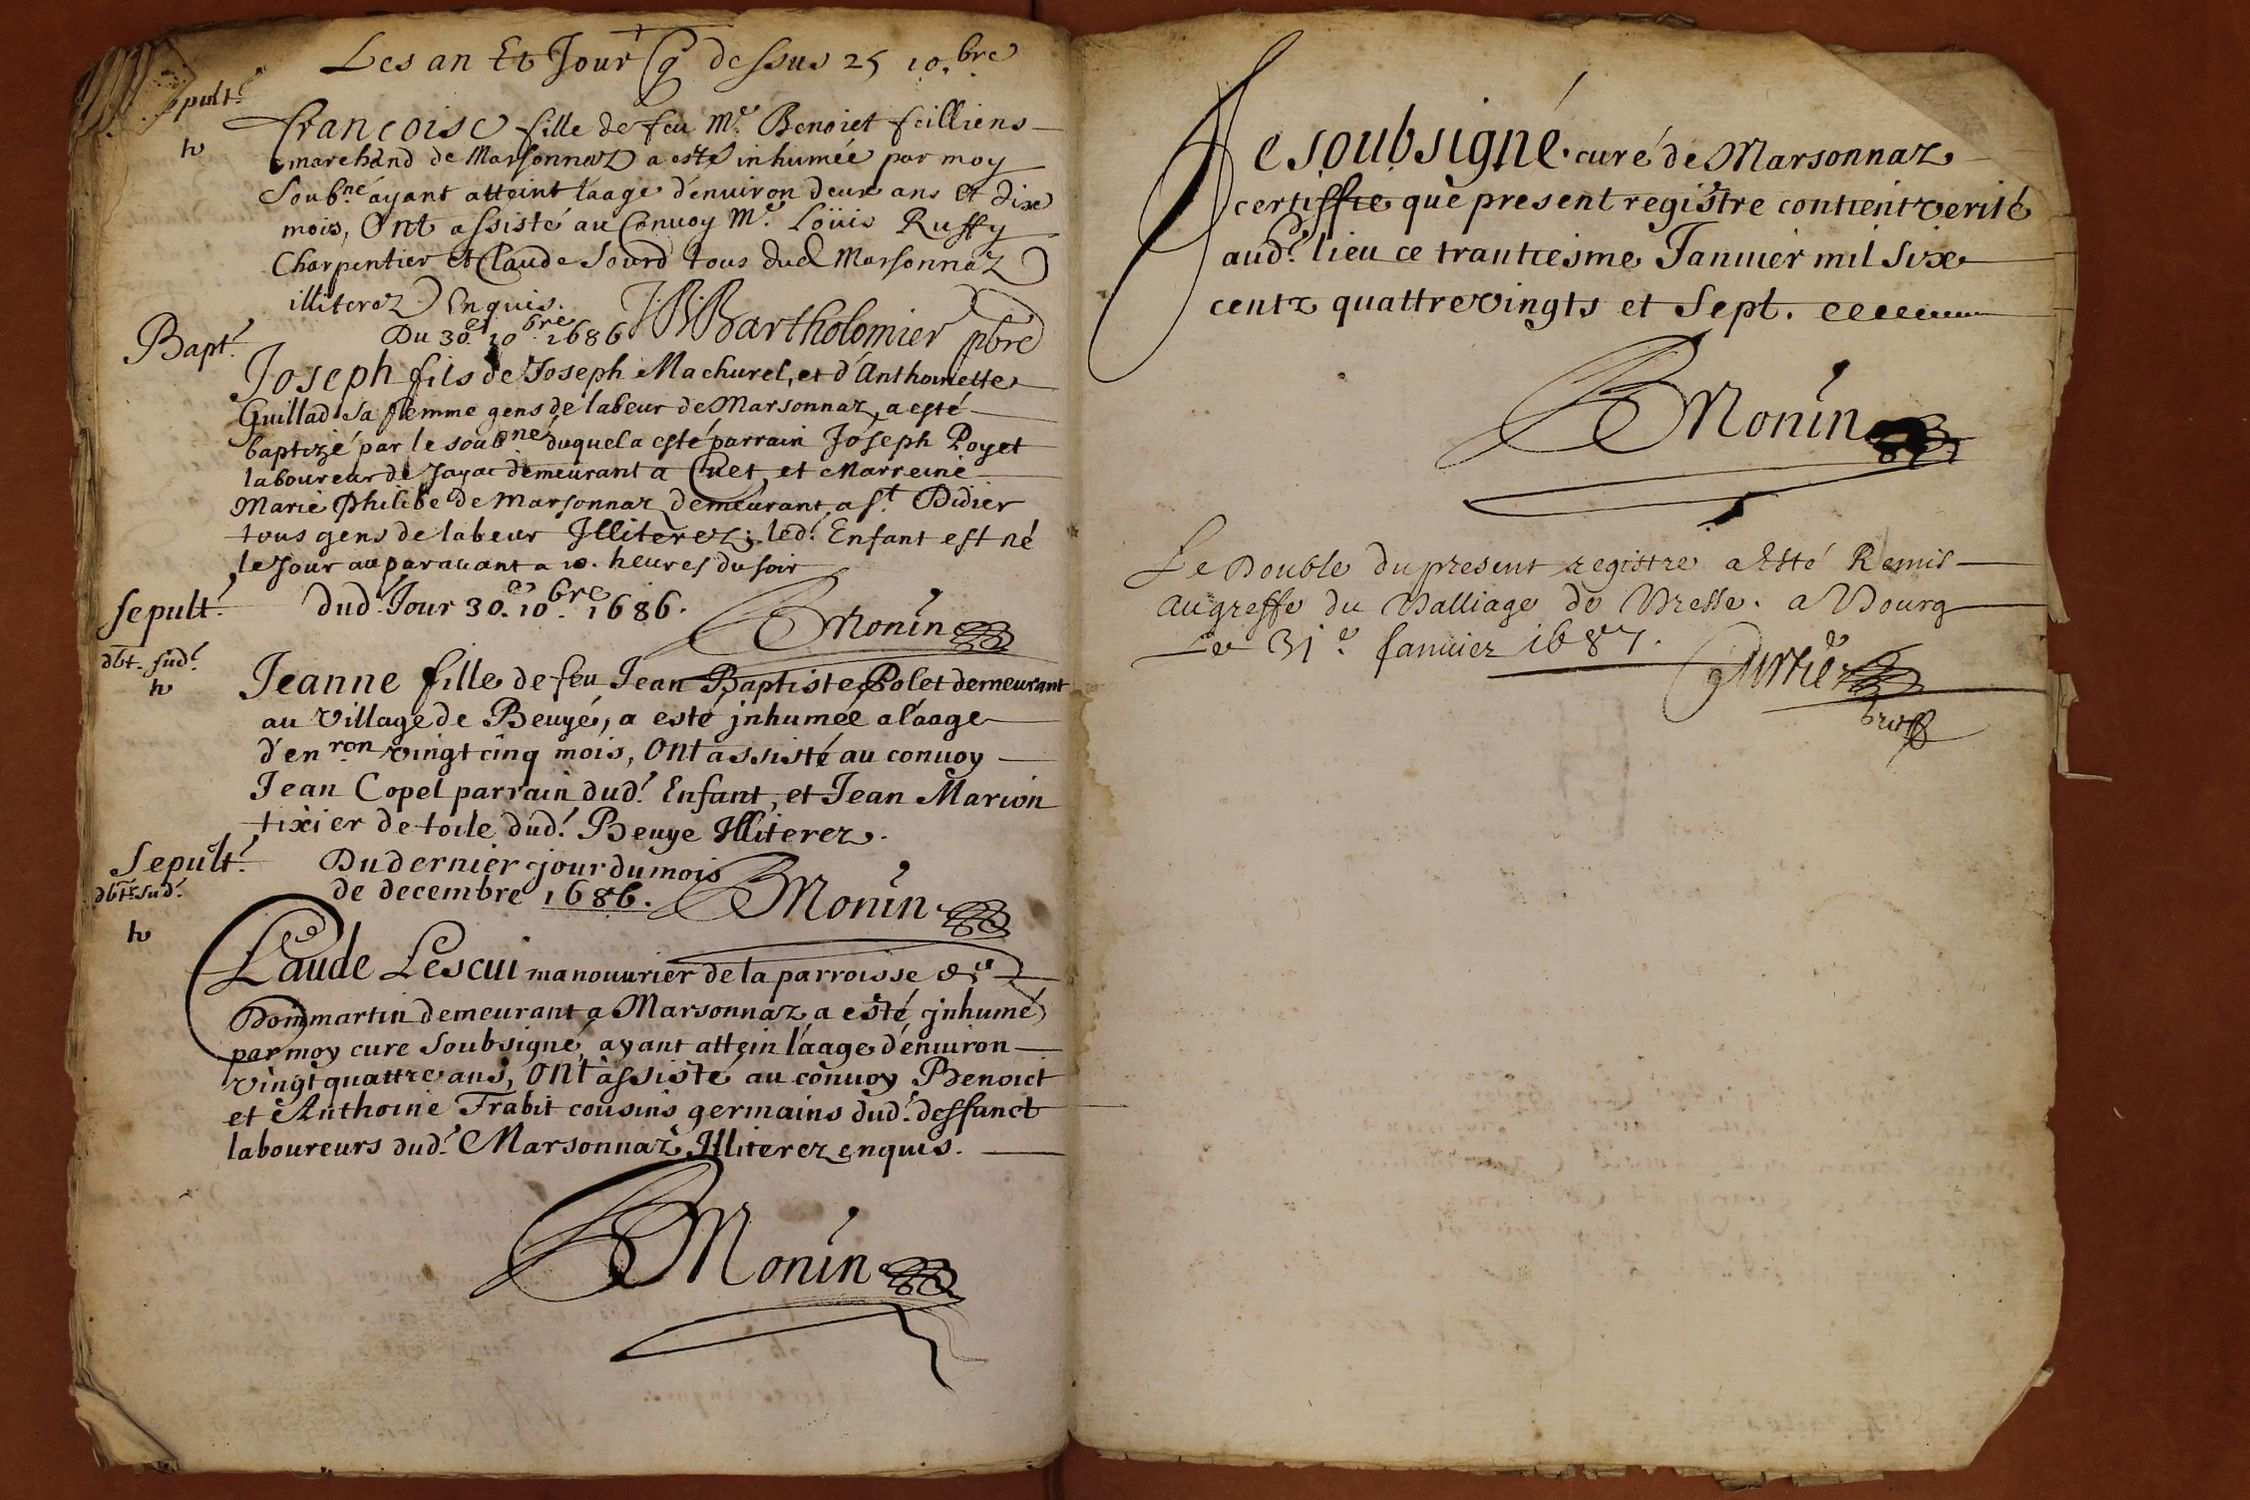 Les an Et Jour Cy dessus 25 10.bre
Sepult.e
h
francoise fille de feu M.e Benoict feilliens
marchand de Marsonnaz a esté inhumée par moy
Soub.né ayant atteint l'aage d'enuiron deux ans et dix
mois, Ont assisté au Conuoy M.e Loüis Ruffy
Charpentier et Claude Sourd tous dud Marsonnaz
illiterez Enquis. Bartholomier pbre
Bapt.e
Du 30.e 10.bre 1686
Joseph fils de Joseph Machurel, et d'Anthoinette
Guillad sa femme gens de labeur de Marsonnaz, a esté
baptizé par le soubné duquel a esté parrain Joseph Poyet
laboureur de Jayac demeurant a Cuet, et Marreine
Marie Philibe de Marsonnaz demeurant a S.t Didier
tous gens de labeur Illiterez; led.t Enfant est né
le Jour auparauant a 10. heures du soir
Sepult.e
dud. Jour 30.e 10.bre 1686.
Monin
dbt. sud.t
h
Jeanne fille de feu Jean Baptiste Polet demeurant
au Village de Beuyé, a esté jnhumée a l'aage
d'enron vingt cinq mois, Ont assisté au conuoy
Jean Copel parrain dud.t Enfant, et Jean Marion
tixier de toile dud.t Beuye Illiterez.
Sepult.e
Du dernier jour du mois
dbt. sud.t
de decembre 1686. Monin
h
Claude Lescui manouurier de la parroisse de
Dommartin demeurant a Marsonnaz a esté jnhumé
par moy cure Soubsigné, ayant attein l'aage d'enuiron
vingt quattre ans, Ont assisté au conuoy Benoict
et Anthoine Trabit cousins germains dud.t deffunct
laboureurs dud.t Marsonnaz Illiterez enquis.
Monin
Je soubsigné curé de Marsonnaz
certiffie que present registre contient verité
aud.t lieu ce trantiesme Januier mil Six
centz quattrevingts et Sept.
Monin
Le Double du present registre a Esté Remis
au greffe du Balliage de Bresse. a Bourg
Le 31.e Januier 1687.